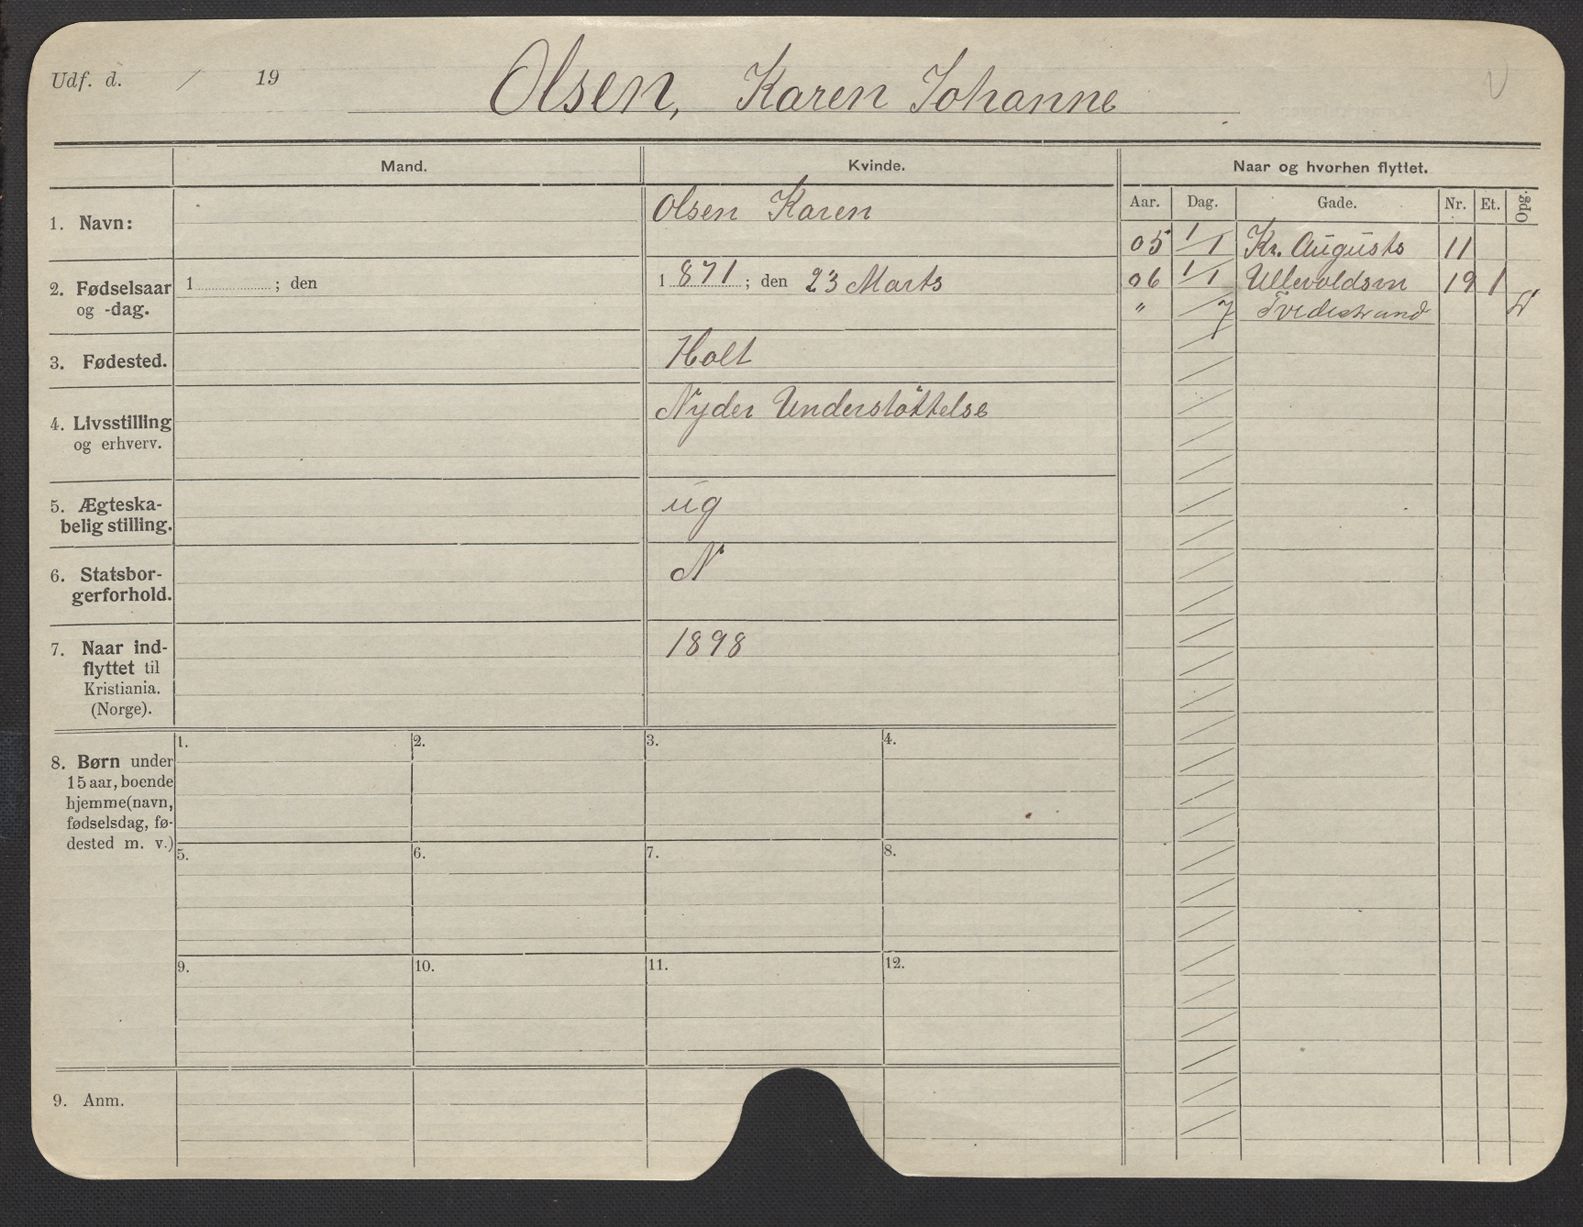 Udf. d. / 19
Olsen, Karen Johanne
Mand.
Kvinde.
Naar og hvorhen flyttet.
Aar. Dag. Gade. Nr. Et. Opg.
1. Navn:
Olsen Karen
05 1/1 Kr. Augusts 11
06 1/1 Ullevoldsvn 19 1
" /7 Tvedestrand
2. Fødselsaar
og -dag.
1 ; den
1871; den 23 Marts
3. Fødested.
Holt
4. Livsstilling
og erhverv.
Nyder Understøttelse
5. Ægteska-
belig stilling.
ug
6. Statsbor-
gerforhold.
N
7. Naar ind-
flyttet til
Kristiania.
(Norge).
1898
8. Børn under
15 aar, boende
hjemme (navn,
fødselsdag, fø-
dested m. v.)
1. 2. 3. 4.
5. 6. 7. 8.
9. 10. 11. 12.
9. Anm.